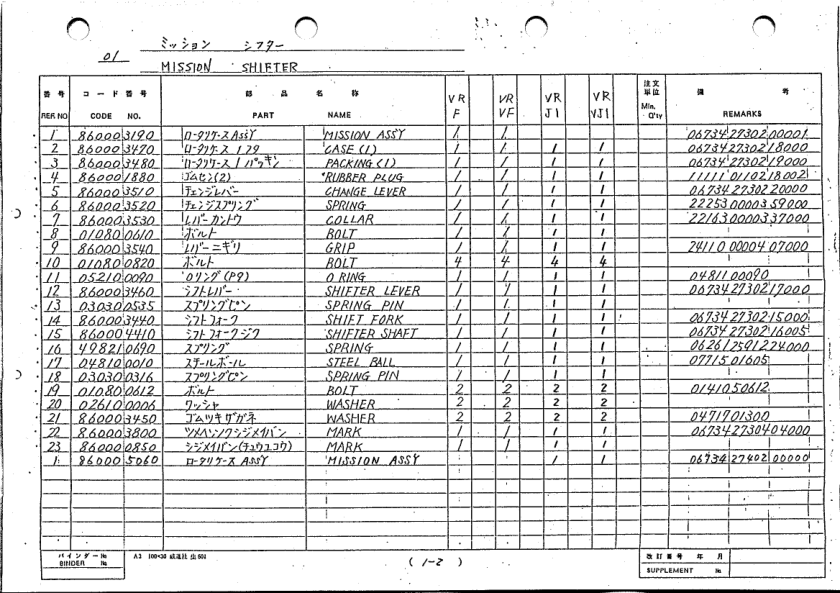 ミッション シフター
01
MISSION SHIFTER
番号 コード番号 部品名称 VR F VR VF VR J1 VR VJ1 注文単位 Min. Q'ty 備考
REF NO CODE NO. PART NAME REMARKS
1 86000 3190 ロータリケースASSY MISSION ASSY 1 1 06734 27302 00001
2 86000 3470 ロータリケース 1フタ CASE (1) 1 1 1 1 06734 27302 18000
3 86000 3480 ロータリケース 1パッキン PACKING (1) 1 1 1 1 06734 27302 19000
4 86000 1880 ゴムセン(2) RUBBER PLUG 1 1 1 1 11111 01102 18002
5 86000 3510 チェンジレバー CHANGE LEVER 1 1 1 1 06734 27302 20000
6 86000 3520 チェンジスプリング SPRING 1 1 1 1 22253 00003 59000
7 86000 3530 レバーカントウ COLLAR 1 1 1 1 22163 00003 37000
8 01080 0610 ボルト BOLT 1 1 1 1
9 86000 3540 レバーニギリ GRIP 1 1 1 1 24110 00004 07000
10 01080 0820 ボルト BOLT 4 4 4 4
11 05210 0090 Oリング(P9) O RING 1 1 1 1 04811 00090
12 86000 3460 シフトレバー SHIFTER LEVER 1 1 1 1 06734 27302 17000
13 03030 0535 スプリングピン SPRING PIN 1 1 1 1
14 86000 3440 シフトフォーク SHIFT FORK 1 1 1 1 06734 27302 15000
15 86000 4410 シフトフォークジク SHIFTER SHAFT 1 1 1 1 06734 27302 16005
16 49821 0690 スプリング SPRING 1 1 1 1 06261 25912 24000
17 04810 0010 スチールボール STEEL BALL 1 1 1 1 07715 01605
18 03030 0316 スプリングピン SPRING PIN 1 1 1 1
19 01080 0612 ボルト BOLT 2 2 2 2 01410 50612
20 02610 0006 ワッシャ WASHER 2 2 2 2
21 86000 3450 ゴムツキザガネ WASHER 2 2 2 2 04717 01300
22 86000 3800 ツメヘンソクシジメイバン MARK 1 1 1 1 06734 27304 04000
23 86000 0850 シジメイバン(チュウユコウ) MARK 1 1 1 1
1 86000 5060 ロータリケース ASSY MISSION ASSY 1 1 06734 27402 00000
バインダーNo. A3 100×30
BINDER No. (1-2)
改訂番号 年 月
SUPPLEMENT No.